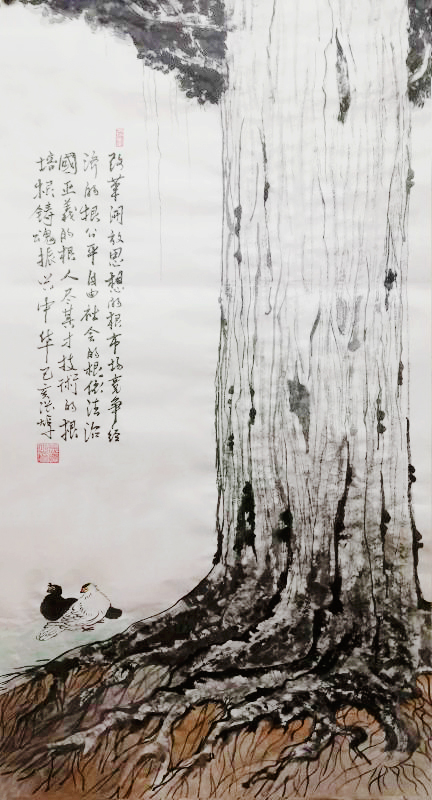 改革開放思想的根市场竞争经
济的根公平自由社会的根依法治
國正義的根人尽其才技術的根
培根鑄魂振兴中华己亥洪